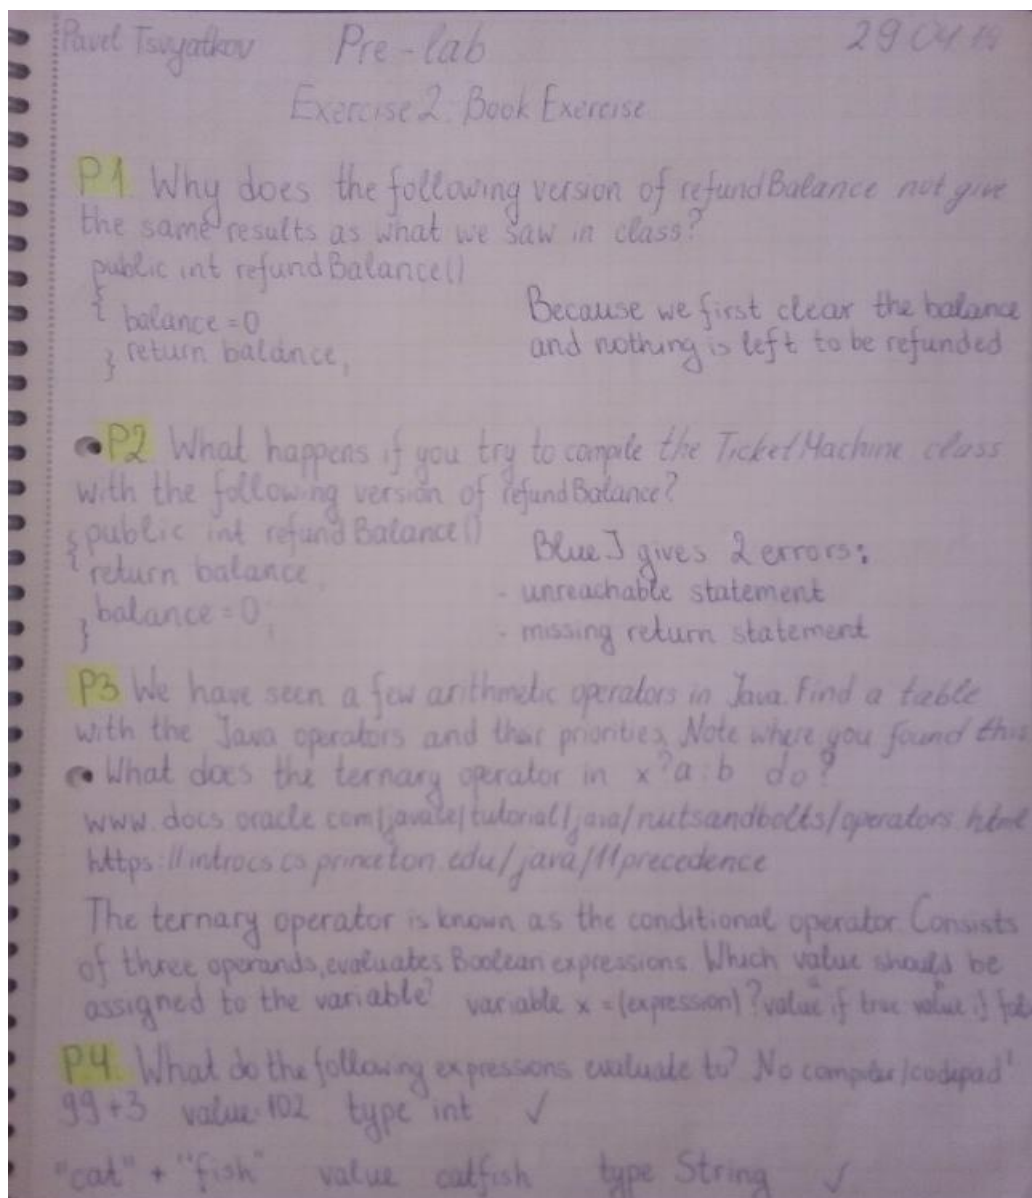 Pavel Tsvyatkov Pre-lab 29.04.19
Exercise 2: Book Exercise
P1 Why does the following version of refundBalance not give
the same results as what we saw in class?
public int refundBalance()
{
balance = 0
return balance;
}
Because we first clear the balance
and nothing is left to be refunded
P2 What happens if you try to compile the TicketMachine class
with the following version of refundBalance?
public int refundBalance()
{
return balance;
balance = 0;
}
BlueJ gives 2 errors:
- unreachable statement
- missing return statement
P3 We have seen a few arithmetic operators in Java. Find a table
with the Java operators and their priorities. Note where you found this
What does the ternary operator in x?a:b do?
www.docs.oracle.com/javase/tutorial/java/nutsandbolts/operators.html
https://introcs.cs.princeton.edu/java/11precedence
The ternary operator is known as the conditional operator. Consists
of three operands, evaluates Boolean expressions. Which value should be
assigned to the variable? variable x = (expression) ? value if true value if
P.4. What do the following expressions evaluate to? No compiler/codepad!
99+3 value: 102 type int ✓
"cat" + "fish" value catfish type String ✓